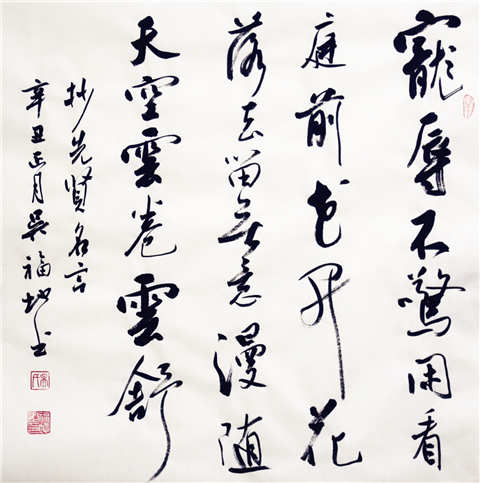 寵辱不驚閑看
庭前花開花
落去留無意漫随
天空雲卷雲舒
抄先贤名言
辛丑正月吳福地书